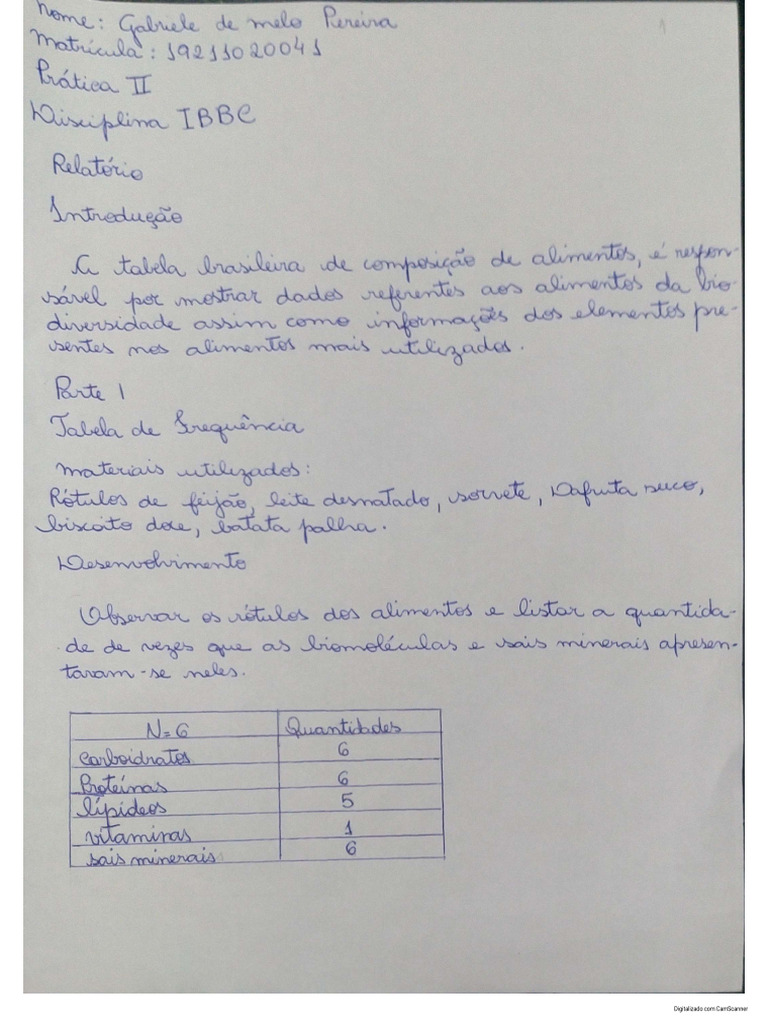 Nome: Gabriele de melo Pereira
Matrícula: 19211020041
Prática II
Disciplina IBBC
Relatório
Introdução
A tabela brasileira de composição de alimentos, é respon-
sável por mostrar dados referentes aos alimentos da bio-
diversidade assim como informações dos elementos pre-
sentes nos alimentos mais utilizados.
Parte 1
Tabela de Frequência
Materiais utilizados:
Rótulos de feijão, leite desnatado, sorvete, Dafruta suco,
biscoito doce, batata palha.
Desenvolvimento
Observar os rótulos dos alimentos e listar a quantida-
de de vezes que as biomoléculas e sais minerais apresen-
taram-se neles.
N=6 Quantidades
carboidratos 6
Proteínas 6
lípideos 5
vitaminas 1
sais minerais 6
Digitalizado com CamScanner